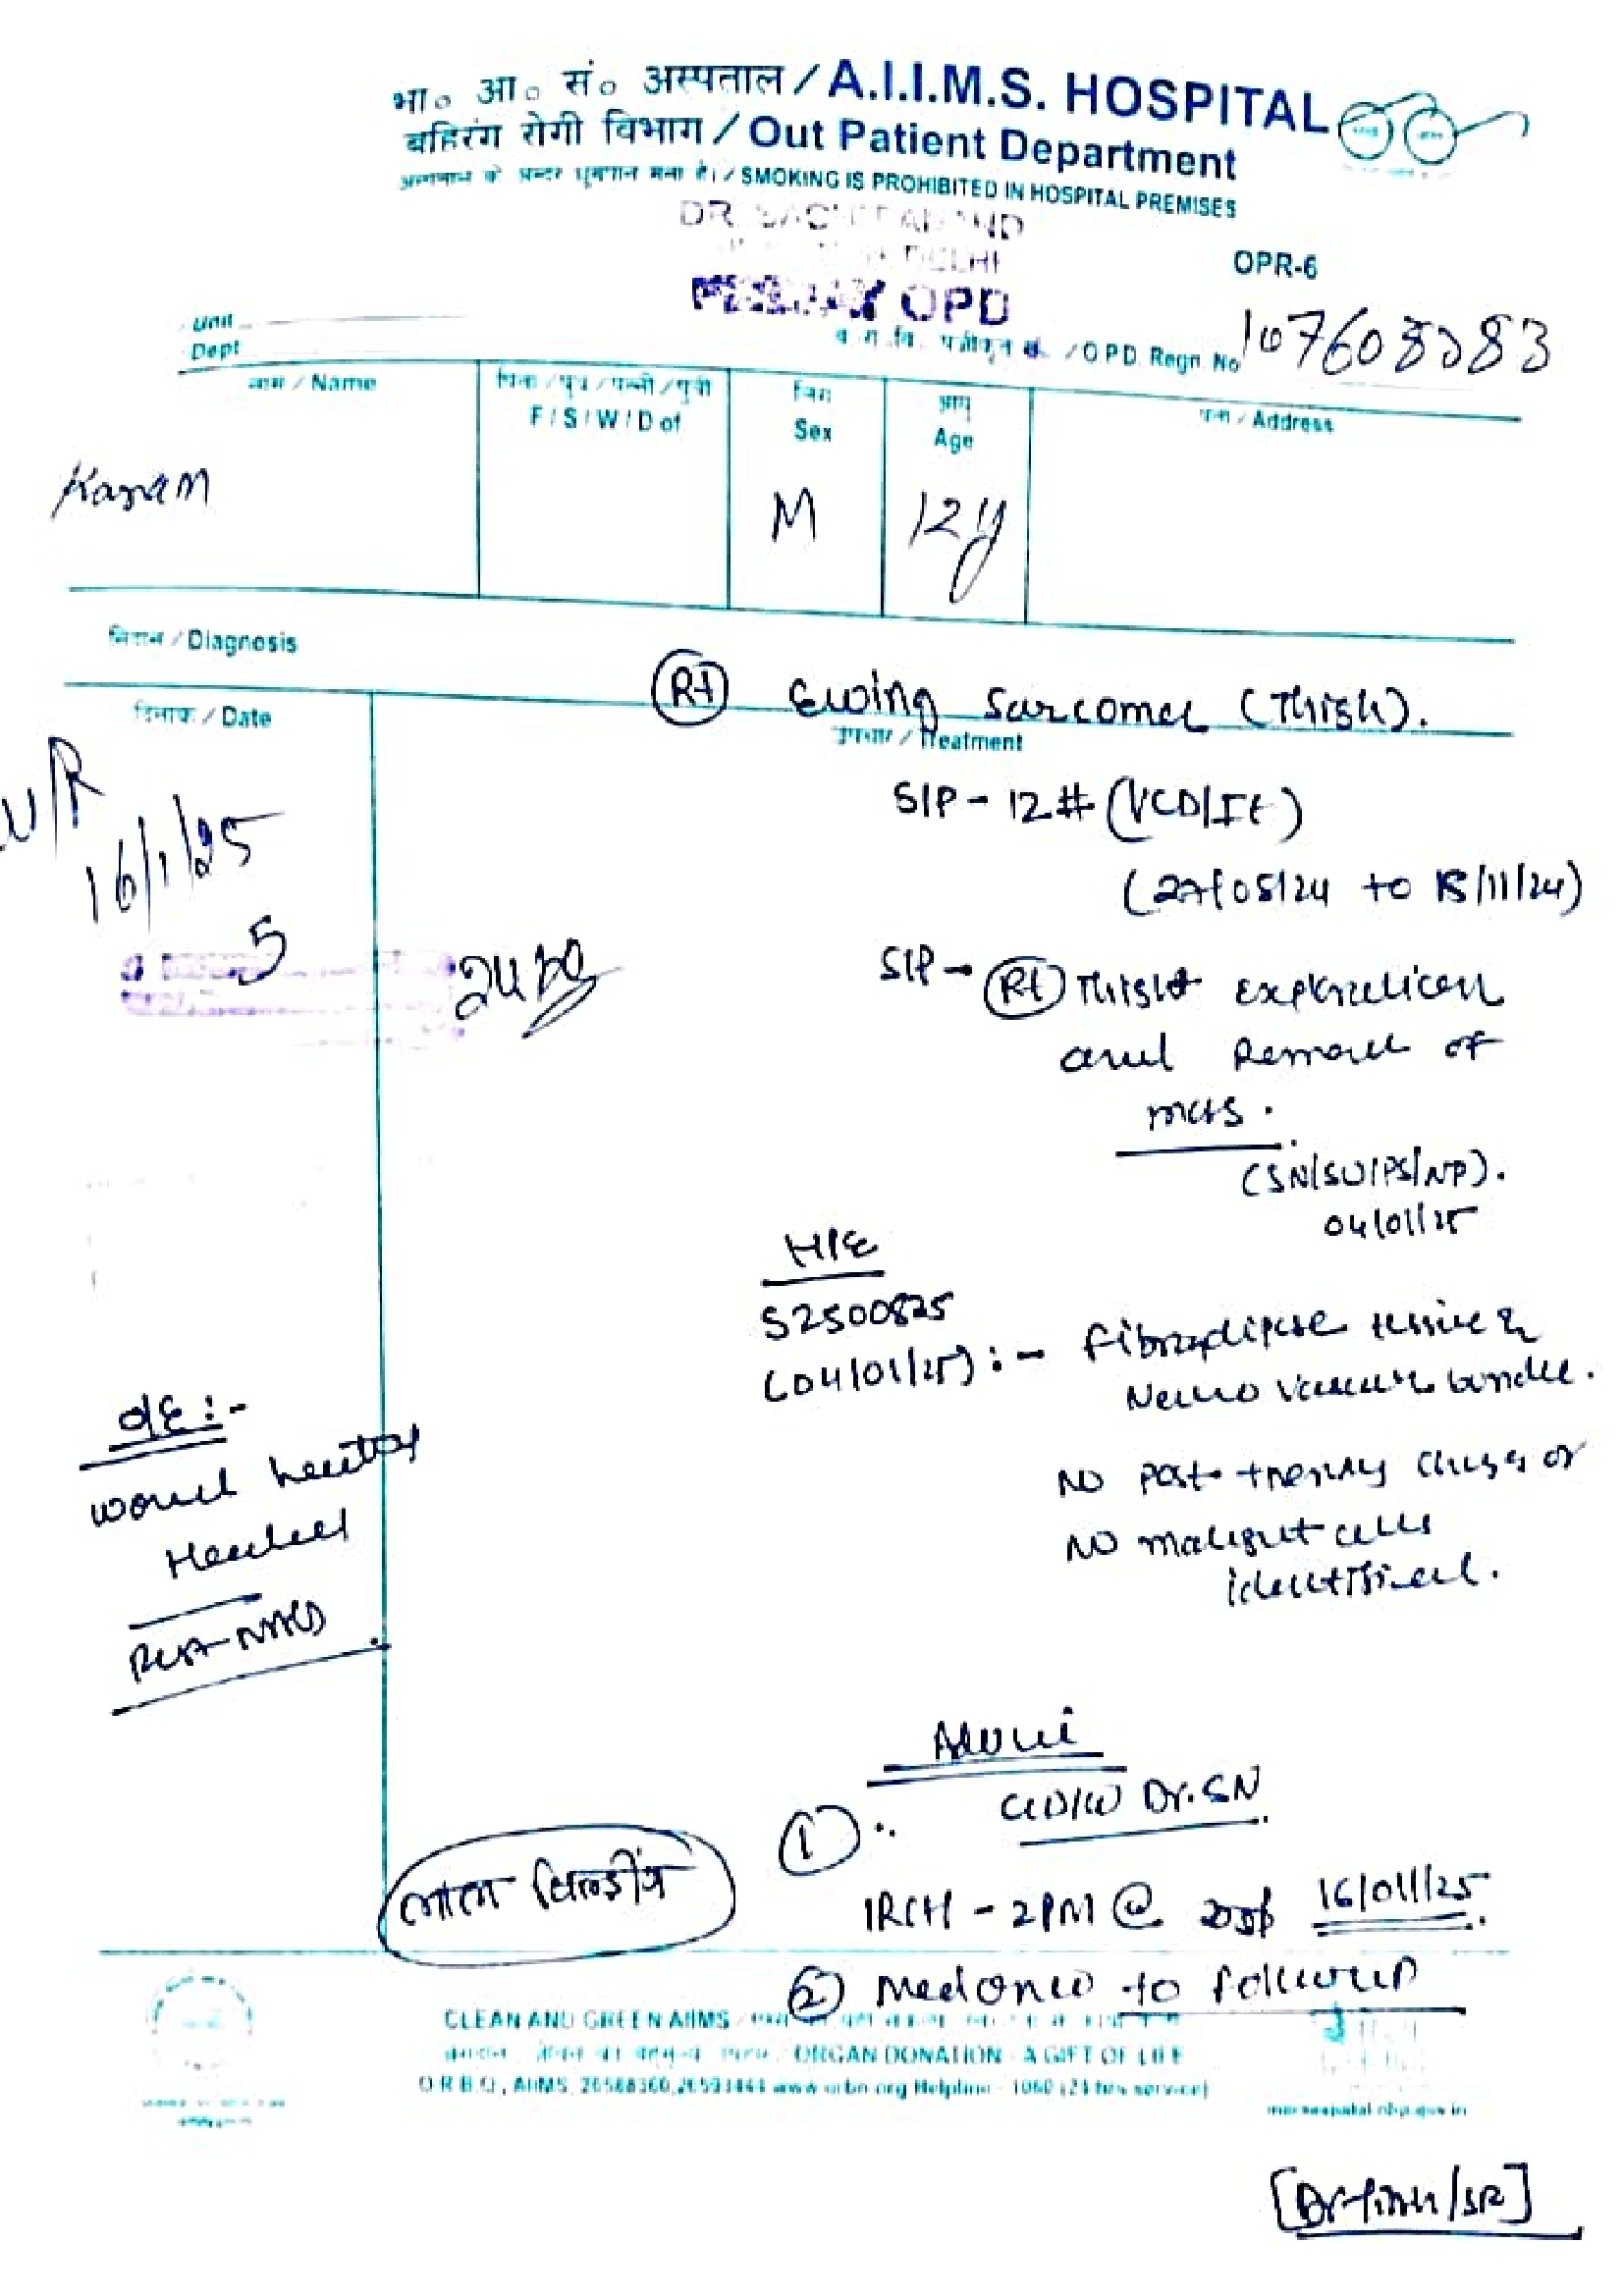 भा० आ० सं० अस्पताल / A.I.I.M.S. HOSPITAL
बहिरंग रोगी विभाग / Out Patient Department
अस्पताल के अन्दर धूम्रपान मना है। / SMOKING IS PROHIBITED IN HOSPITAL PREMISES
DR.
DELHI
OPD
OPR-6
Unit
Dept
/O.P.D. Regn. No
नाम / Name
पिता / पुत्र / पत्नी / पुत्री
F / S / W / D of
Sex
आयु
Age
/ Address
M
12y
निदान / Diagnosis
(Rt) Ewing Sarcoma (Thigh).
दिनांक / Date
उपचार / Treatment
16/1/25
5
S/P - 12# (VCD/IE)
(27/05/24 to 18/11/24)
S/P - (Rt) Thigh exploration
and Removal of
mass.
(SN/SU/PS/NP).
04/01/25
HPE
S2500825
(04/01/25) :- Fibroadipose tissue &
Neuro vascular bundle.
NO Post therapy changes or
NO malignt cells
identified.
O/E :-
wound
Healed
Advice
(1) C/D/W Dr. SN
IRCH - 2PM @ 16/01/25
लाल बिल्डींग
(2) Medonco to followup
CLEAN AND GREEN AIIMS /
/ ORGAN DONATION - A GIFT OF LIFE
O.R.B.O., AIIMS, 26588360, 26593444 www.orbo.org Helpline - 1060 (24 hrs service)